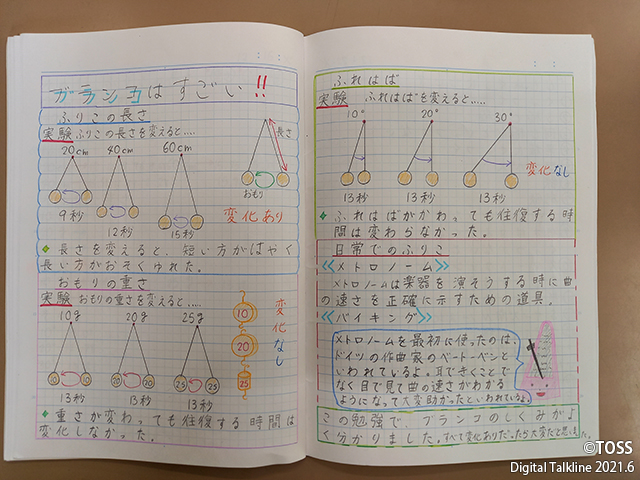 ブランコはすごい!!
ふりこの長さ
実験 ふりこの長さを変えると.....
20cm 40cm 60cm
長さ
おもり
9秒 12秒 15秒
変化あり
長さを変えると、短い方がはやく
長い方がおそくゆれた。
おもりの重さ
実験 おもりの重さを変えると.....
10g 20g 25g
10 10 20 20 25 25
13秒 13秒 13秒
10
20
25
変化なし
重さが変わっても往復する時間は
変化しなかった。
ふれはば
実験 ふれはばを変えると.....
10° 20° 30°
13秒 13秒 13秒
変化なし
ふれはばがかわっても往復する時
間は変わらなかった。
日常でのふりこ
《メトロノーム》
メトロノームは楽器を演そうする時に曲
の速さを正確に示すための道具。
《バイキング》
メトロノームを最初に使ったのは、
ドイツの作曲家のベートーベンと
いわれているよ。耳できくことで
なく目で見て曲の速さがわかる
ようになって大変助かったといわれているよ。
この勉強で、ブランコのしくみがよ
く分かりました。すべて変化ありだったら大変だと思いました。
©TOSS
Digital Talkline 2021.6